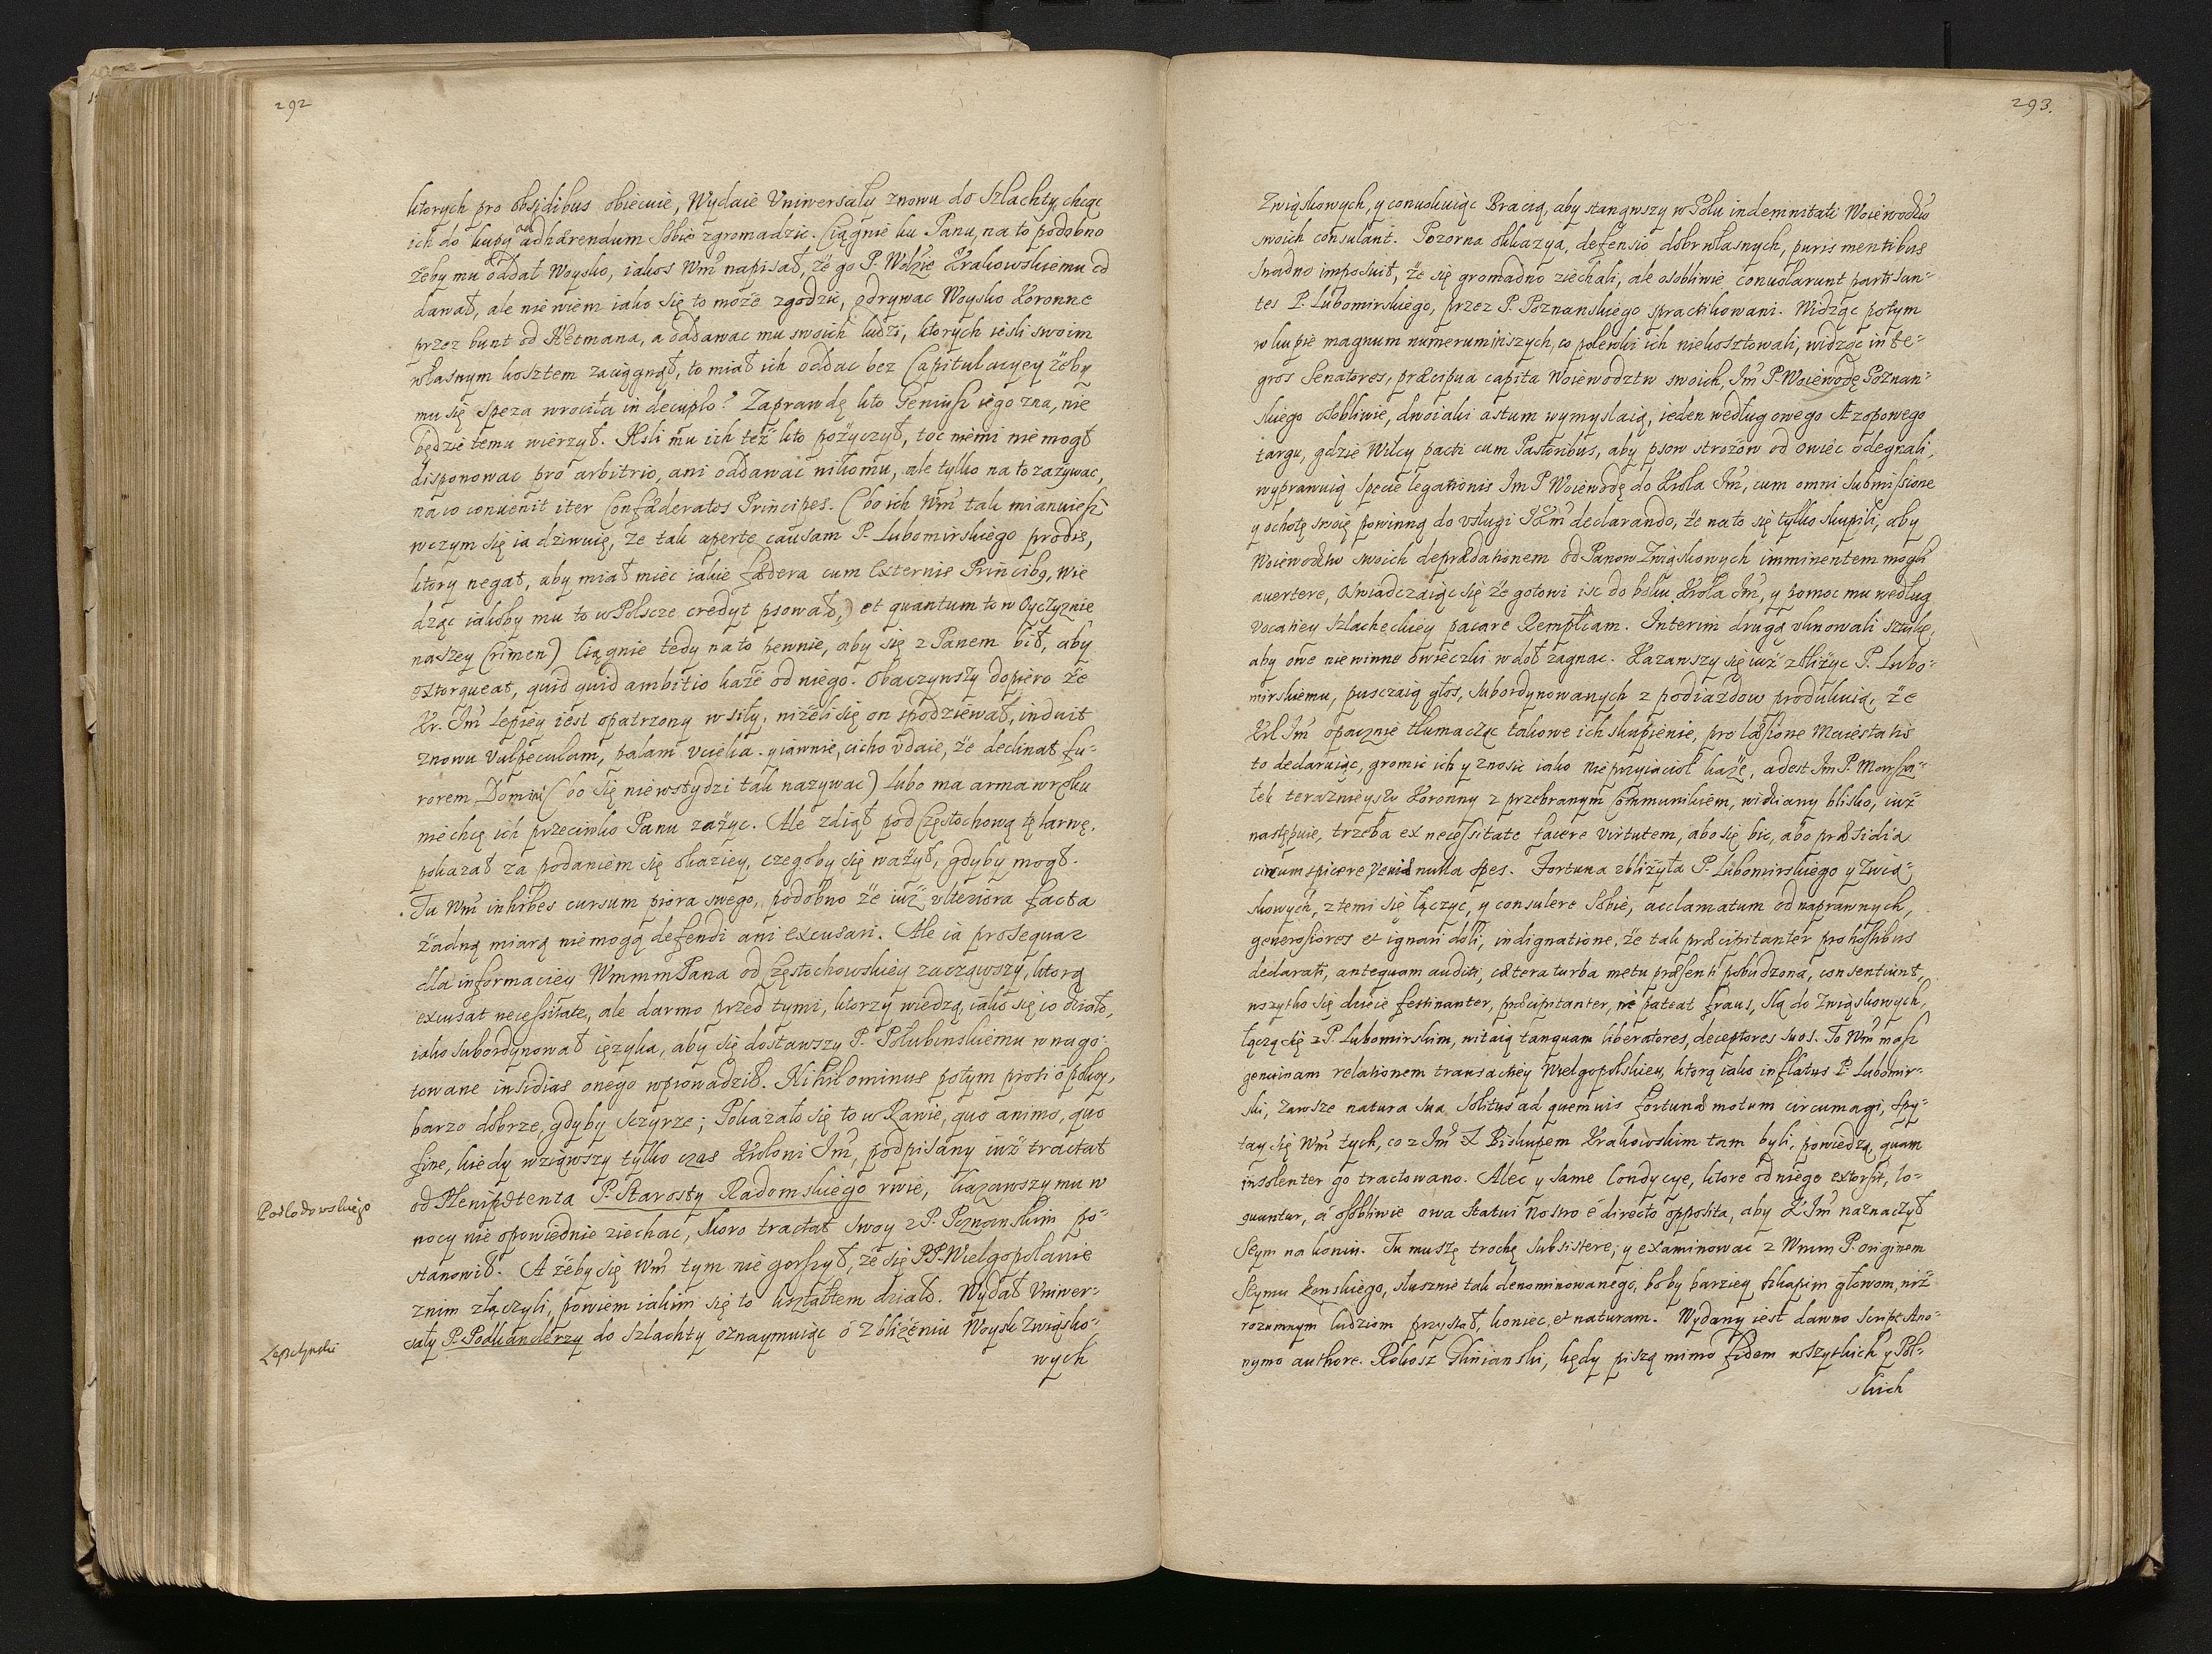 292
ktorych pro obsidibus obiecuie, Wydaie Vniwersały znowu do Szlachty, chcąc
ich do kupy ad adhærendum Sobie zgromadzic. Ciągnie ku Panu, na to podobno
żeby mu oddał Woysko, iakos Wm napisał, że go P. Wdzie Krakowskiemu od
dawał, ale nie wiem iako się to może zgodzic, odrywac Woysko Koronne
przez bunt od Hetmana, a oddawac mu swoich ludzi, ktorych iesli swoim
własnym kosztem zaciągnął, to miał ich oddac bez Capitulacyey żeby
mu się speza wrociła in decuplo? Zaprawdę kto Geniusz iego zna, nie
będzie temu wierzył. Jesli mu ich też kto pożyczył, toc niemi nie mogł
disponowac pro arbitrio, ani oddawac nikomu, ale tylko na to zażywac,
na co conuenit iter Confæderatos Principes. (bo ich Wm tak mianuiesz
w czym się ia dziwuię, że tak aperte causam P. Lubomirskiego prodis,
ktory negat, aby miał miec iakie fædera cum Externis Principibg, wie
dząc iakoby mu to w Polscze credyt psował,) et quantum to w Oyczyznie
naszey Crimen) Ciągnie tedy na to pewnie, aby się z Panem bił, aby
extorqueat, quid quid ambitio każe od niego. Obaczywszy dopiero że
Kr. Jm lepiey iest opatrzony w siły, niżeli się on spodziewał, induit
znowu Vulpeculam, palam vcieka y iawnie, cicho vdaie, że declinat fu-
rorem Domini (bo się nie wstydzi tak nazywac) lubo ma arma w ręku
nie chcę ich przeciwko Panu zażyc. Ale zdiął pod Częstochową tę larwę,
pokazał za podaniem się okaziey, czegoby się ważył, gdyby mogł.
Tu Wm inhibes cursum piora swego, podobno że iuż vlteriora facta
żadną miarą nie mogą defendi ani excusari. Ale ia prosequar
dla informaciey WmmmPana od Częstochowskiey zacząwszy, ktorą
excusat necessitate, ale darmo przed tymi, ktorzy wiedzą, iako się co działo,
iako subordynował ięzyka, aby się dostawszy P. Połubinskiemu w nago-
towane insidias onego wprowadził. Nihilominus potym prosi o pokoy,
barzo dobrze, gdyby sczyrze; Pokazało się to w Rawie, quo animo, quo
fine, kiedy wziąwszy tylko czas Krolowi Jm, podpisany iuż tractat
od Plenipotenta P. Starosty Radomskiego rwie, kazawszy mu w
Podlodowskiego
nocy nie opowiednie ziechac, skoro tractat swoy z P. Poznanskim po-
stanowił. A żeby się Wm tym nie gorszył, że się PP. Wielgopolanie
znim złączyli, powiem iakim się to kształtem działo. Wydał Vniwer-
sały P. Podkanclerzy do Szlachty oznaymuiąc o zbliżeniu Woysk Związko-
Leszczynski
wych
293.
Związkowych, y conuokuiąc Bracią, aby stanąwszy w Polu indemnitati Woiewodztw
swoich consulant. Pozorna okkazya, defensio dobr własnych, puris mentibus
snadno imposuit, że się gromadno ziechali, ale osobliwie conuolarunt partisan-
tes P. Lubomirskiego, przez P. Poznanskiego spractikowani. Widząc potym
w kupie magnum numerum inszych, co polewki ich nie kosztowali, widząc inte-
gros Senatores, præcipua capita Woiewodztw swoich, Jm P. Woiewodę Poznan-
skiego osobliwie, dwoiaki astum wymyslaią, ieden według owego AEzopowego
targu, gdzie Wilcy pacti cum Pastoribus, aby psow strożow od owiec odegnali,
wyprawuią specie legationis Jm P Woiewodę do Krola Jm, cum omni submissione
y ochotę swoię powinną do vsługi JKm declarando, że na to się tylko skupili, aby
Woiewodztw swoich deprædationem od Panow Związkowych imminentem mogli
auertere, Oswiadczaiąc się że gotowi isc do boku Krola Jm, y pomoc mu według
vocatiey Szlacheckiey pacare Rempcam. Interim drugą vknowali sztukę,
aby owe niewinne owieczki w doł zagnac. Kazawszy się iuż zbliżyc P. Lubo-
mirskiemu, pusczaią głos, subordynowanych z podiazdow produkuią, że
Krl Jm opacznie tłumacząc takowe ich skupienie, pro læsione Maiestatis
to declaruiąc, gromic ich y znosic iako nieprzyiacioł każe, adest Jm P. Marsza-
łek teraznieyszy Koronny z przebranym Communikiem, widziany blisko, iuż
następuie, trzeba ex necessitate facere virtutem, abo się bic, abo præsidia
circumspicere, veniæ nulla spes. Fortuna zbliżyła P. Lubomirskiego y Zwią-
zkowych, z temi się łączyc, y consulere Sobie, acclamatum od naprawnych,
generosiores et ignari doli, indignatione, że tak præcipitanter pro hostibus
declarati, antequam auditi, cætera turba metu præsenti pobudzona, consentiunt,
wszytko się dzieie festinanter, præcipitanter, ne pateat fraus, słą do Związkowych,
łączą się z P. Lubomirskim, witaią tanquam liberatores, deceptores suos. To Wm masz
genuinam relationem transactiey Wielgopolskiey, ktorą iako inflatus P. Lubomir-
ski, zawsze natura sua solitus ad quemuis fortunæ motum circumagi, spy-
tay się Wm tych, co z Jm X Biskupem Krakowskim tam byli, powiedzą, quam
insolenter go tractowano. Alec y same Condycye, ktore od niego extorsit, lo-
quuntur, a osobliwie owa Statui nostro è directo opposita, aby K Jm naznaczył
Seym na koniu. Tu muszę trochę subsistere, y examinowac z Wmm P. originem
Seymu konskiego, słusznie tak denominowanego, boby barziey szkapim głowom, niż
rozumnym ludziom przystał, koniec, et naturam. Wydany iest dawno Script Ano-
nymo authore. Rokosz Glinianski, kędy piszą mimo fidem wszytkich y Pol-
skich